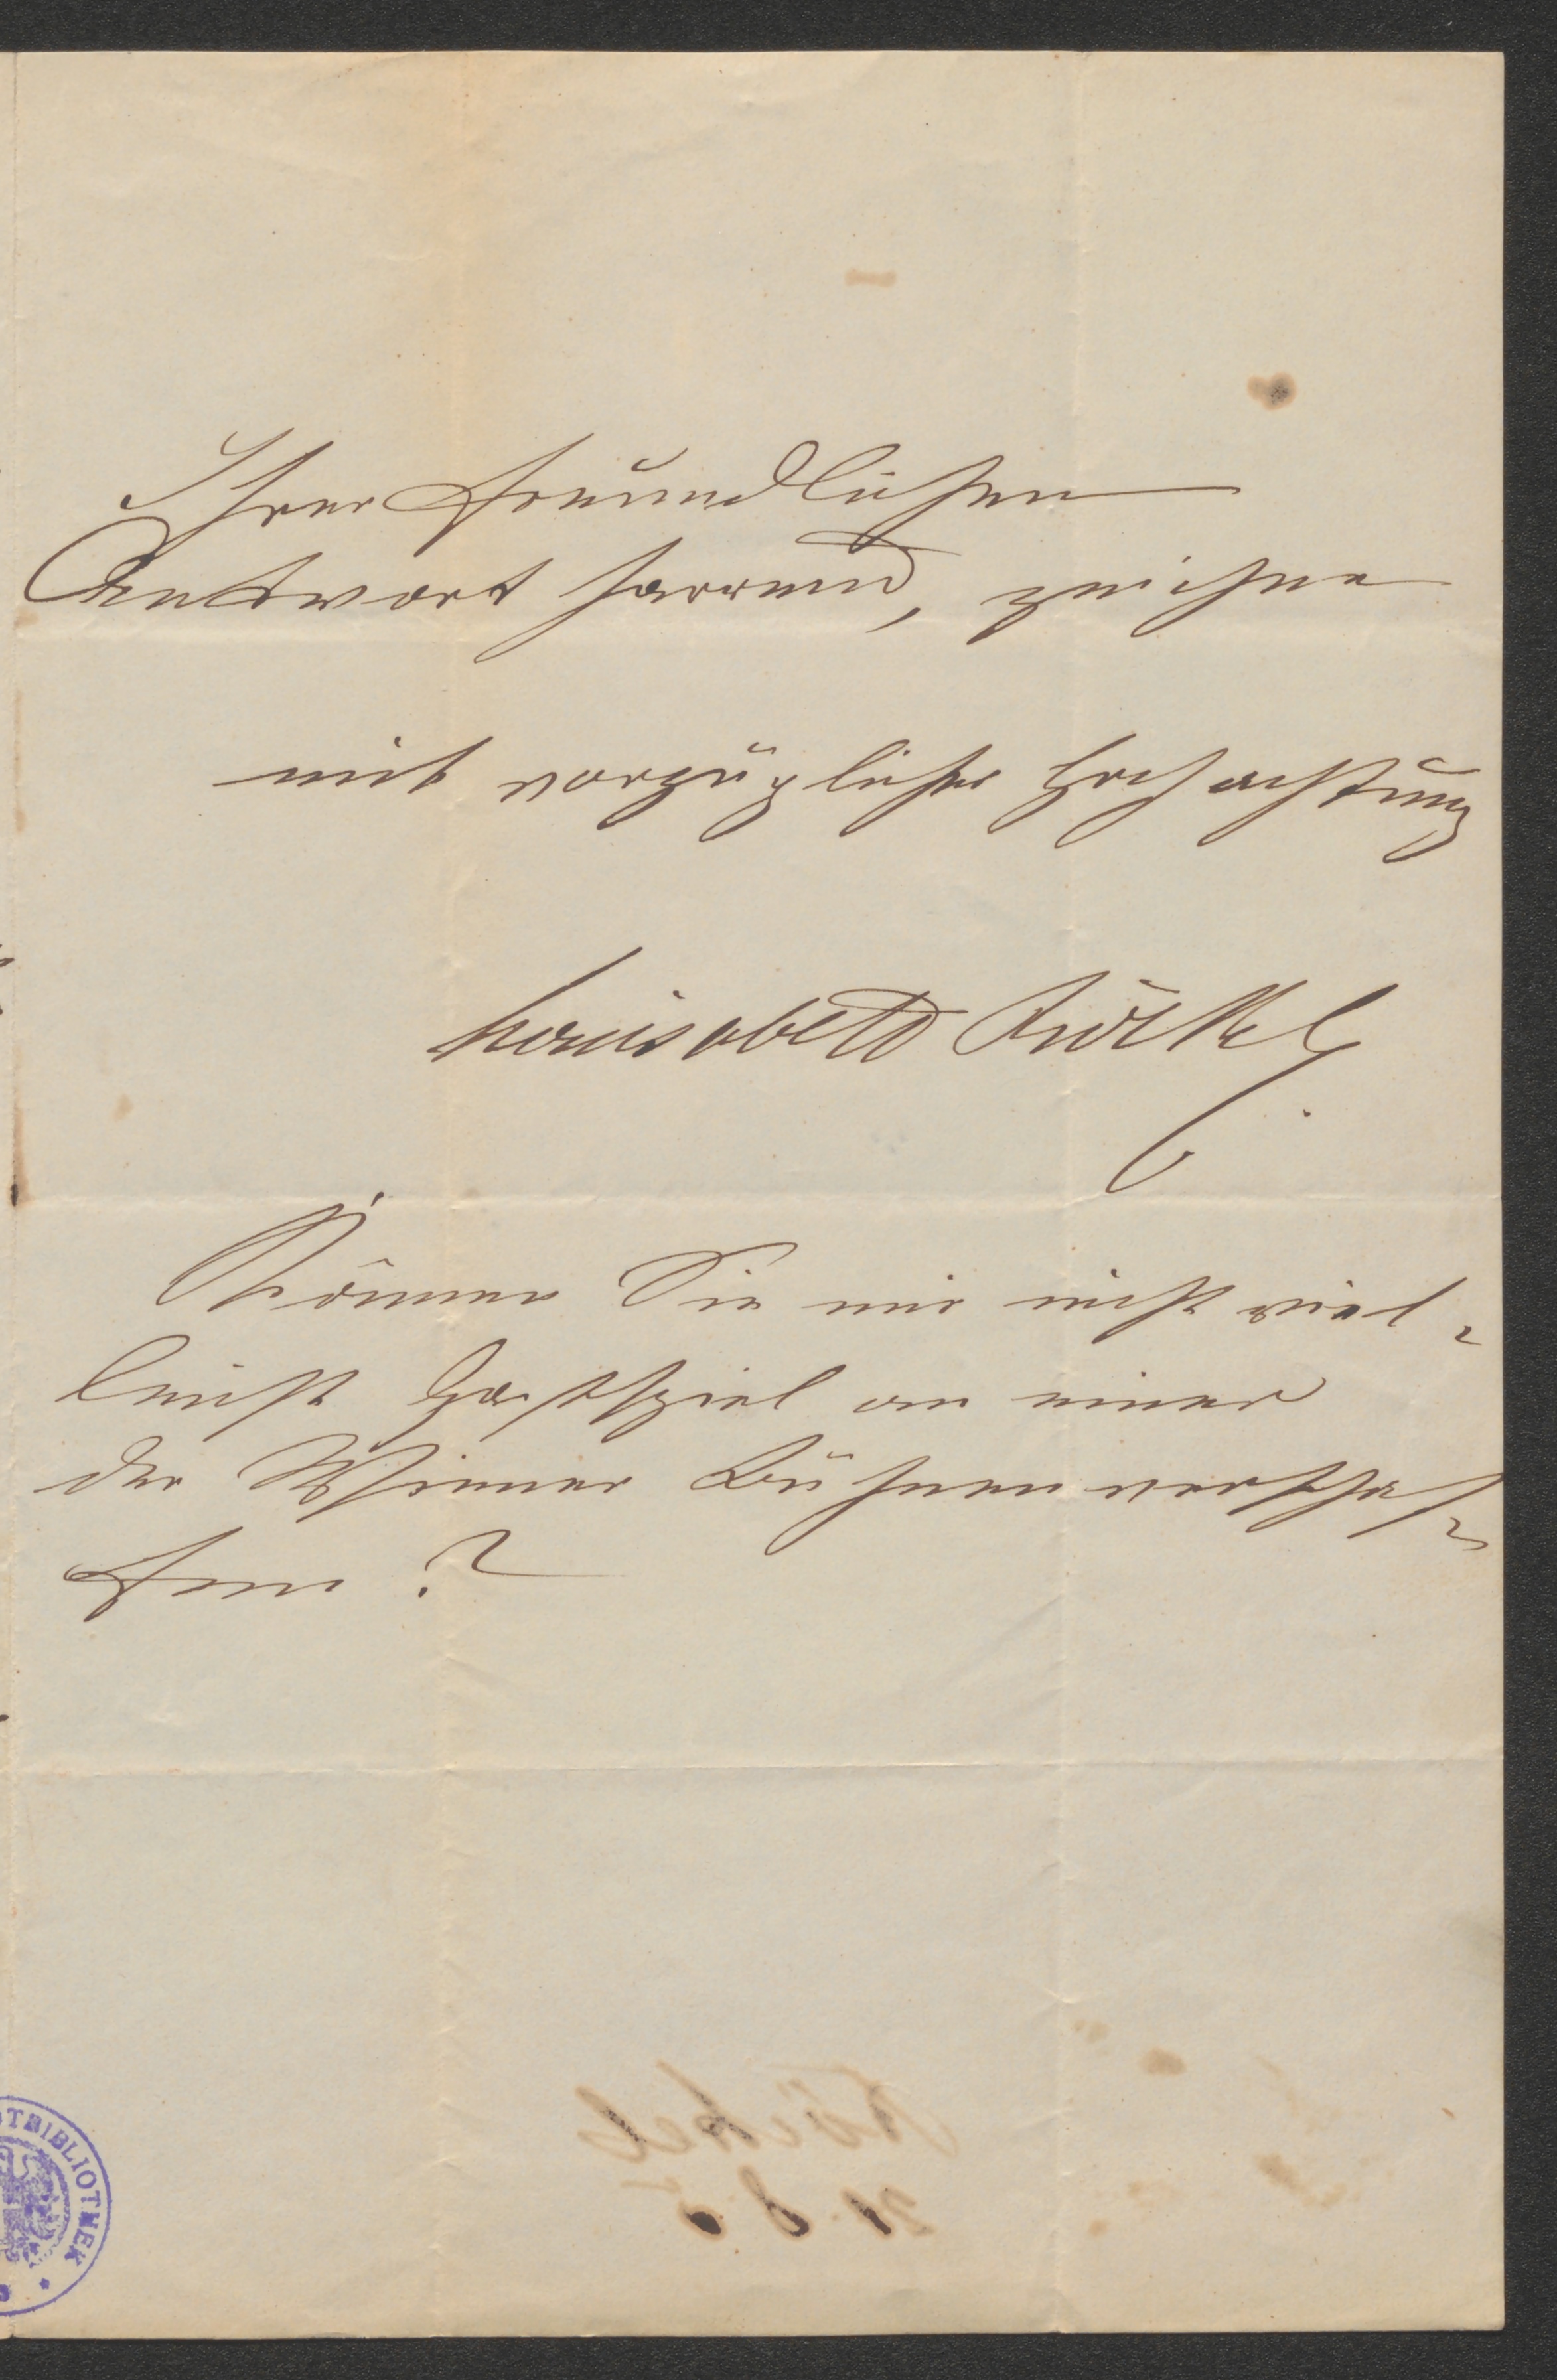 Ihrer freundlichen
Antwort harrend, zeichne
mit vorzüglicher Hochachtung
Louisabeth Röckel
Können Sie mir nicht viel-
leicht Gastspiel an einer
der Wiener Bühnen verschaf-
fen?
Röckel
21. 8
TBIBLIOTHEK